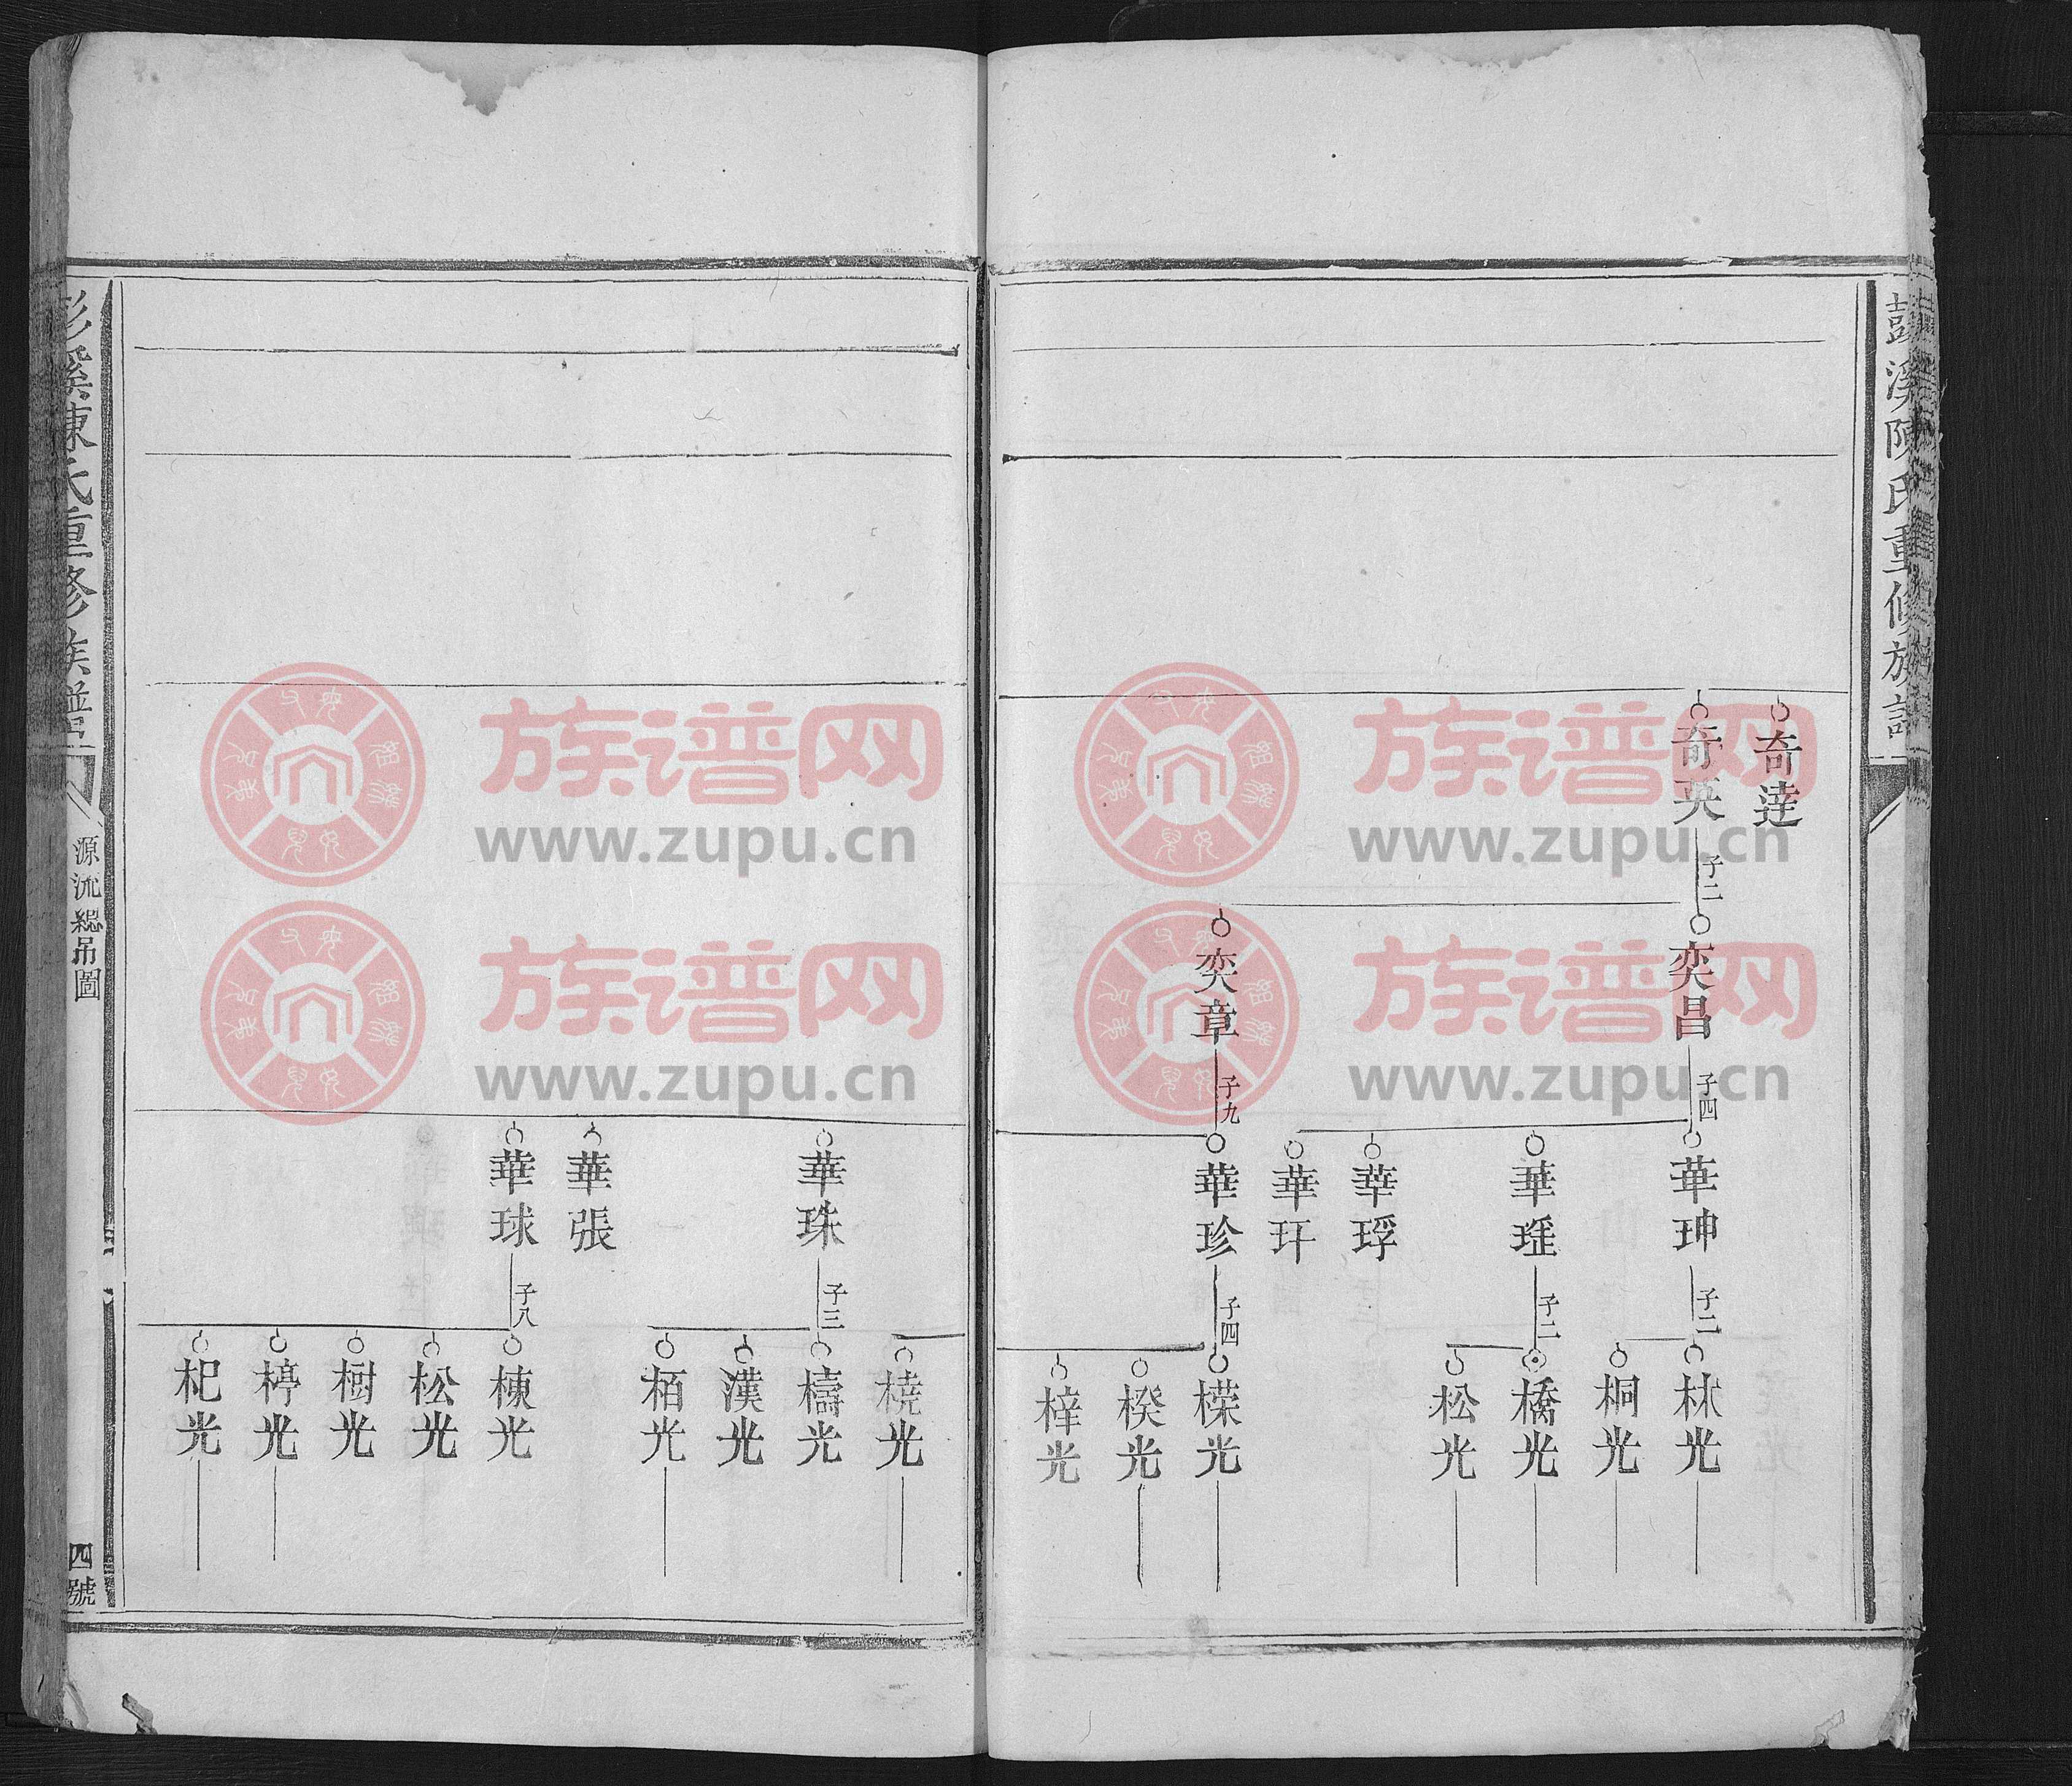 彭溪陳氏重修族譜
奇達
奇英
子二
奕昌
子四
華珅
子二
林光
桐光
華瑶
子二
橋光
松光
華琈
華玕
奕章
子九
華珍
子四
榮光
楑光
梓光
橈光
華珠
子三
檮光
漢光
栢光
華張
華球
子八
棟光
松光
樹光
楟光
杞光
彭溪陳氏重修族譜
源流總吊圖
四號
族谱网
www.zupu.cn
族谱网
www.zupu.cn
族谱网
www.zupu.cn
族谱网
www.zupu.cn